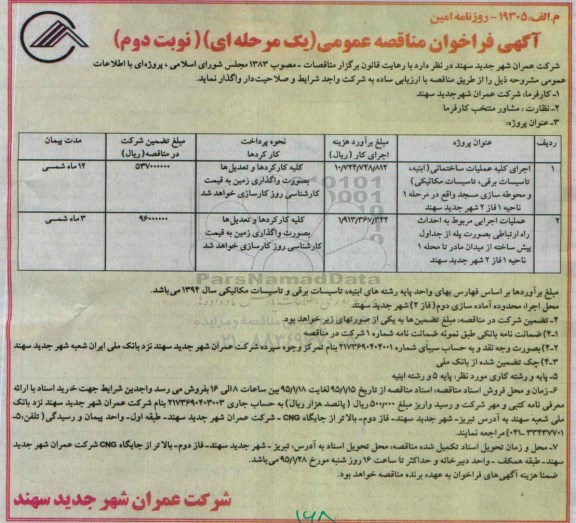 م.الف:۱۹۳۰۵ - روزنامه امین
آگهی فراخوان مناقصه عمومی(یک مرحله ای) ( نوبت دوم)
شرکت عمران شهر جدید سهند در نظر دارد با رعایت قانون برگزار مناقصات - مصوب ۱۳۸۳ مجلس شورای اسلامی ، پروژه‌ای با اطلاعات
عمومی مشروحه ذیل را از طریق مناقصه با ارزیابی ساده به شرکت واجد شرایط و صلاحیت‌دار واگذار نماید.
۱- کارفرما، شرکت عمران شهر جدید سهند
۲- نظارت ، مشاور منتخب کارفرما
۳- عنوان پروژه:
ردیف عنوان پروژه مبلغ برآورد هزینه اجرای کار (ریال) نحوه پرداخت کارکردها مبلغ تضمین شرکت در مناقصه(ریال) مدت پیمان
۱ اجرای کلیه عملیات ساختمانی (ابنیه، تاسیسات برقی، تاسیسات مکانیکی) و محوطه سازی مسجد واقع در مرحله ۱ ناحیه ۱ فاز ۲ شهر جدید سهند ۱۰/۷۲۴/۷۴۸/۸۱۴ کلیه کارکردها و تعدیل‌ها بصورت واگذاری زمین به قیمت کارشناسی روز کارسازی خواهد شد ۵۳۷۰۰۰۰۰۰ ۱۲ ماه شمسی
۲ عملیات اجرایی مربوط به احداث راه ارتباطی بصورت پله از جداول پیش ساخته از میدان مادر تا محله ۱ ناحیه ۱ فاز ۲ شهر جدید سهند ۱/۹۱۳/۳۶۷/۳۴۲ کلیه کارکردها و تعدیل‌ها بصورت واگذاری زمین به قیمت کارشناسی روز کارسازی خواهد شد ۹۶۰۰۰۰۰۰ ۳ ماه شمسی
ParsNamadData
مبلغ برآوردها بر اساس فهارس بهای واحد پایه رشته های ابنیه، تاسیسات برقی و تاسیسات مکانیکی سال ۱۳۹۴ می‌باشد.
محل اجرا: محدوده آماده سازی دوم (فاز ۲) شهر جدید سهند
۴- تضمین شرکت در مناقصه: مبلغ تضمین‌ها به یکی از صورتهای زیر خواهد بود.
۴-۱) ضمانت نامه بانکی طبق نمونه ضمانت نامه شماره ۱ شرکت در مناقصه
۴-۲) بصورت وجه نقد و به حساب سیبای شماره ۲۱۷۳۶۹۰۴۰۴۰۰۱ بنام تمرکز وجوه سپرده شرکت عمران شهر جدید سهند نزد بانک ملی ایران شعبه شهر جدید سهند
۴-۳) چک تضمین شده از بانک ملی
۵- پایه و رشته کاری مورد نظر: پایه ۵ و رشته ابنیه
۶- زمان و محل فروش اسناد مناقصه: اسناد مناقصه از تاریخ ۹۵/۱/۱۵ لغایت ۹۵/۱/۱۸ بین ساعات ۸ الی ۱۶ بفروش می رسد واجدین شرایط جهت خرید اسناد با ارائه
معرفی نامه کتبی و مهر شرکت و رسید واریز مبلغ ۵۰۰/۰۰۰ ریال ( پانصد هزار ریال) به حساب جاری ۲۱۷۳۶۹۰۴۰۳۰۰۳ بنام شرکت عمران شهر جدید سهند نزد بانک
ملی شعبه سهند به آدرس تبریز- شهر جدید سهند- فاز دوم- بالاتر از جایگاه CNG - شرکت عمران شهر جدید سهند- طبقه اول- واحد پیمان و رسیدگی ( تلفن:۵-
۳۳۴۳۷۷۰۱-۰۴۱) مراجعه نمایند.
۷- محل و زمان تحویل اسناد تکمیل شده مناقصه: محل تحویل اسناد به آدرس، تبریز - شهر جدید سهند- فاز دوم- بالاتر از جایگاه CNG شرکت عمران شهر جدید
سهند- طبقه همکف - واحد دبیرخانه و حداکثر تا ساعت ۱۶ روز شنبه مورخ ۹۵/۱/۲۸ می‌باشد.
ضمنا هزینه آگهی‌های فراخوان به عهده برنده مناقصه خواهد بود.
شرکت عمران شهر جدید سهند
۱۶۸